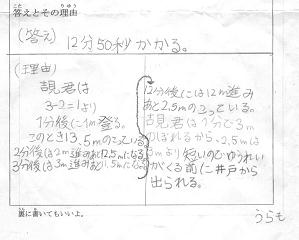 答えとその理由
(答え)
12分50秒かかる。
(理由)
君は
3-2=1より
1分後に1m登る。
このとき13.5mのこっている
2分後は2m進みあと12.5mになる
3分後は3m進みあと11.5mになる
12分後には12m進み
あと2.5mのこっている。
君は1分で3m
のぼれるから、2.5mは
3mより短いのでゆうれい
がくる前に井戸から
出られる。
裏に書いてもいいよ。
うらも